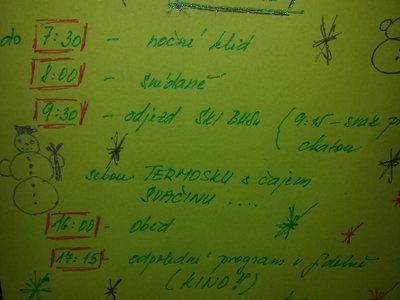 do 7:30 - noční klid
8:00 - snídaně
9:30 - odjezd SKI BUSU (9:15 - sraz p
chatou
sebou TERMOSKU s čajem
SVAČINU ....
16:00 - Oběd
17:15 - odpolední program v jídelně
(KINO!!)